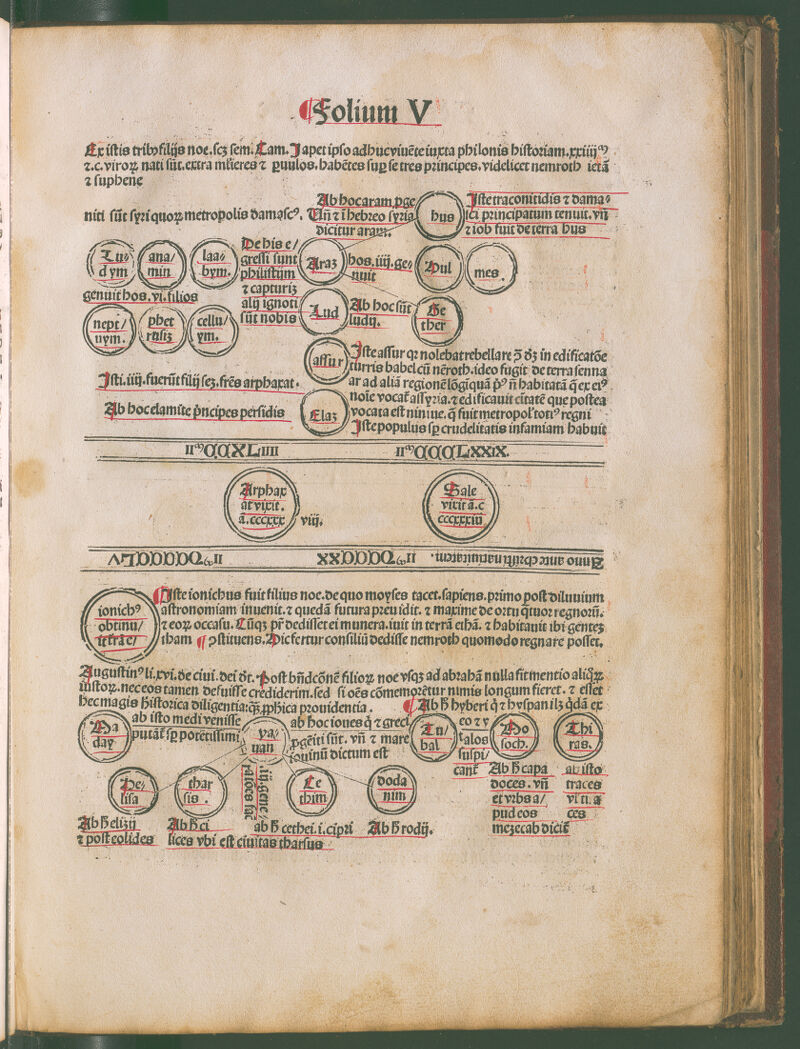 ¶Folium V
Ex istis tribꝰ filijs noe. scꝫ sem. Cam. Iapet ipso adhuc viuēte iuxta philonis historiam. xxiiijᵐ
⁊.c. viroꝝ nati sūt. extra mlieres ⁊ ꝑuulos. habētes suꝑ se tres principes. videlicet nemroth ietā
⁊ suphene
Ab hoc aram ꝓge
niti sūt syri quoꝝ metropolis damascꝰ. Vñ ⁊ ī hebreo syria
dicitur aram.
hus
Iste traconitidis ⁊ dama⸗
sci principatum tenuit. vñ
⁊ iob fuit de terra hus
Lu⸗
dym
ana/
min
laa⸗
bym.
De his e/
gressi sunt
philistijm
⁊ capturiꝫ
alij ignoti
sūt nobis
Araꝫ
hos. iiij. ge⸗
nuit
Hul
mes.
genuit hos. vi. filios
nept/
uym.
phet
rusiꝫ
cellu/
ym.
Lud
Ab hoc sūt
ludij.
Ge
ther
assur
Iste assur qꝛ nolebat rebellare ꝯ dꝫ in edificatōe
turris babel cū nēroth. ideo fugit de terra senna
ar ad aliā regionē lōgīquā pꝰ ñ habitatā q̄ ex eiꝰ
noīe vocat assyria. ⁊ edificauit citatē que postea
vocata est niniue. q̄ fuit metropol' totiꝰ regni
Iste populus sꝑ crudelitatis infamiam habuit
Isti. iiij. fuerūt filij seꝫ. frēs arphaxat.
Ab hoc elamite pͥncipes persidis
Elaꝫ
IIᵐCCXLIIII
IIᵐCCCLXXIX.
Arphax
at vixit.
ā.ccccxx
viij.
Sale
vixit ā.c
ccccxxxiii
Anno ante christi natiuitatem. IIᵐ
Iste ionichus fuit filius noe. de quo moyses tacet. sapiens. primo post diluuium
astronomiam inuenit. ⁊ quedā futura preuidit. ⁊ maxime de ortu q̄tuor regnoꝝ.
⁊ eoꝝ occasu. Cūqꝫ pr̄ dedisset ei munera. iuit in terrā ethā. ⁊ habitauit ibi genteꝫ
illam ¶ ꝯstituens. Dic fertur consiliū dedisse nemroth quomodo regnare posset.
ionichꝰ
obtinu/
it terrā e/
Augustinꝰ li. xvi. de ciui. dei dt̄. Post bñdcōnē filioꝝ noe vsqꝫ ad abrahā nulla fit mentio aliqͦꝝ
iustoꝝ. nec eos tamen defuisse crediderim. sed si oēs cōmemorētur nimis longum fieret. ⁊ esset
hec magis historica diligentia: qꝫ ꝓphica prouidentia. ¶ Ab h̄ hyberi q̄ ⁊ hyspani ilꝫ qͥdā ex
Ma
day
ab isto medi venisse
putāt sꝑ potētissimi
ya⸗
uan
ab hoc ioues q̄ ⁊ greci
ꝓgēiti sūt. vñ ⁊ mare
iouinū dictum est
Tu/
bal
eo ⁊ y
talos
suspi/
cant̄
Mo
soch.
Thi
ras.
He/
lisa
thar
sis.
iiij. gene⸗
ratōes fac
Ce
thim
doda
nim
Ab h̄ capa
doces. vñ
et vrbs a/
pud eos
mezecab dicit̄
ab isto
traces
vñ. a
ces
Ab h̄ elizij
⁊ post eolides
Ab h̄ ci
lices vbi est ciuitas tharsus
ab h̄ cethei. i. cipri
Ab h̄ rodij.